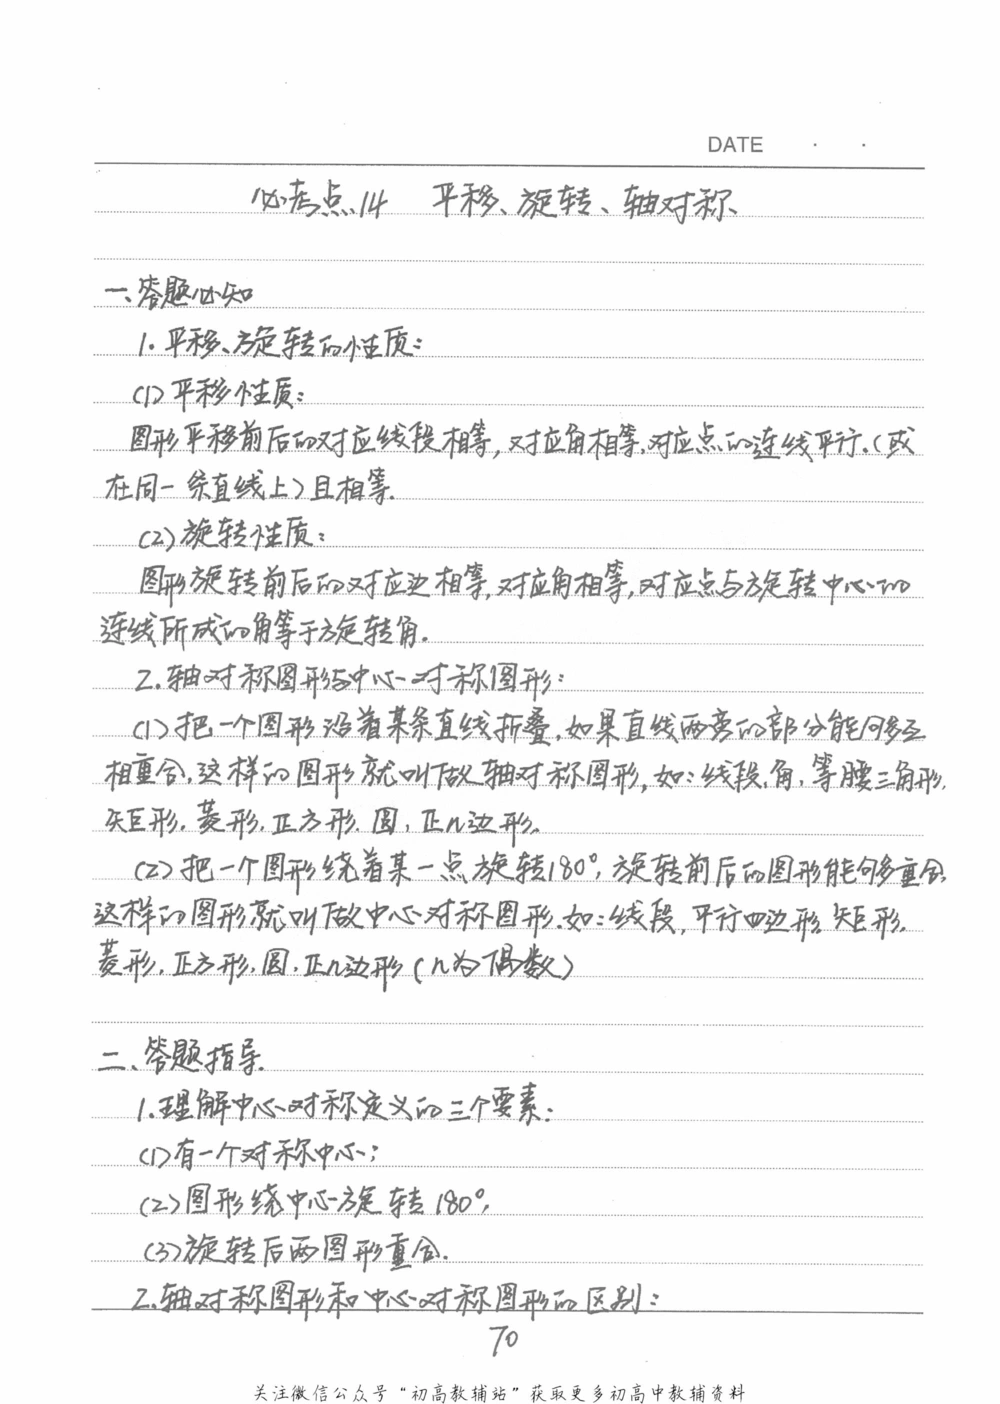 DATE · ·
必考点14 平移、旋转、轴对称
一、答题必知
1. 平移、旋转的性质：
(1) 平移性质：
图形平移前后的对应线段相等，对应角相等.对应点的连线平行.(或
在同一条直线上)且相等.
(2) 旋转性质：
图形旋转前后的对应边相等，对应角相等，对应点与旋转中心的
连线所成的角等于旋转角.
2. 轴对称图形与中心对称图形：
(1) 把一个图形沿着某条直线折叠，如果直线两旁的部分能够互
相重合，这样的图形就叫做轴对称图形，如：线段，角，等腰三角形，
矩形，菱形，正方形，圆，正n边形.
(2) 把一个图形绕着某一点旋转180°，旋转前后的图形能够重合，
这样的图形就叫做中心对称图形.如：线段，平行四边形，矩形，
菱形，正方形，圆，正n边形(n为偶数)
二、答题指导
1.理解中心对称定义的三个要素：
(1)有一个对称中心；
(2)图形绕中心旋转180°；
(3)旋转后两图形重合.
2.轴对称图形和中心对称图形的区别：
70
关注微信公众号“初高教辅站”获取更多初高中教辅资料